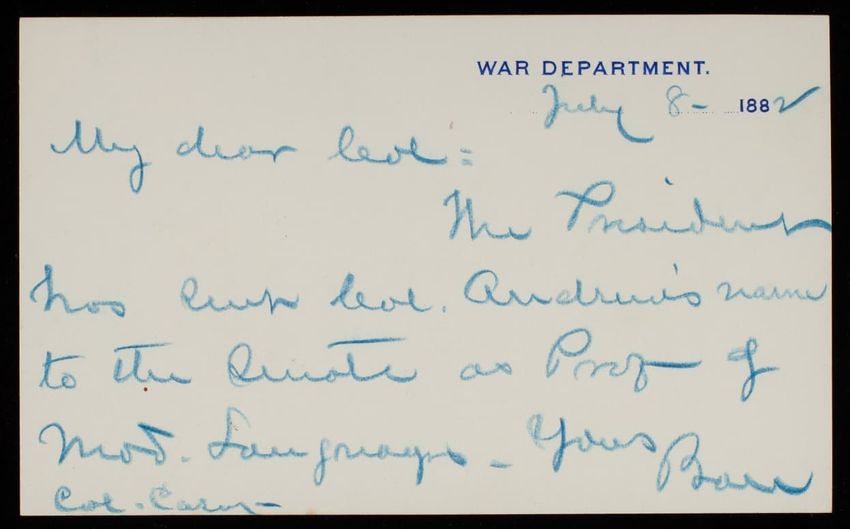 WAR DEPARTMENT.
July 8- 1882
My dear Col:
The President
has sent Col. Andrews's name
to the Senate as Prof of
Mod. Languages - Yours
Barr
Col. Casey